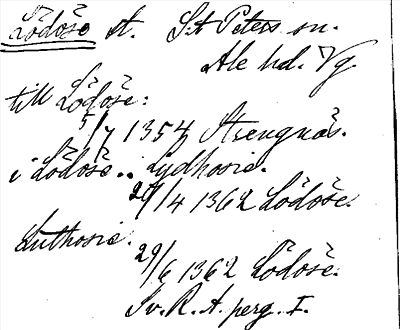 Lödöse st. S:t Peters sn.
Ale hd. Vg.
till Lödöse:
5/7 1354 Strengnäs.
i Lödöse .. Lydhosie.
20/4 1362 Lödöse.
Luthosie.
29/6 1362 Lödöse.
Sv. R. A. perg. I.